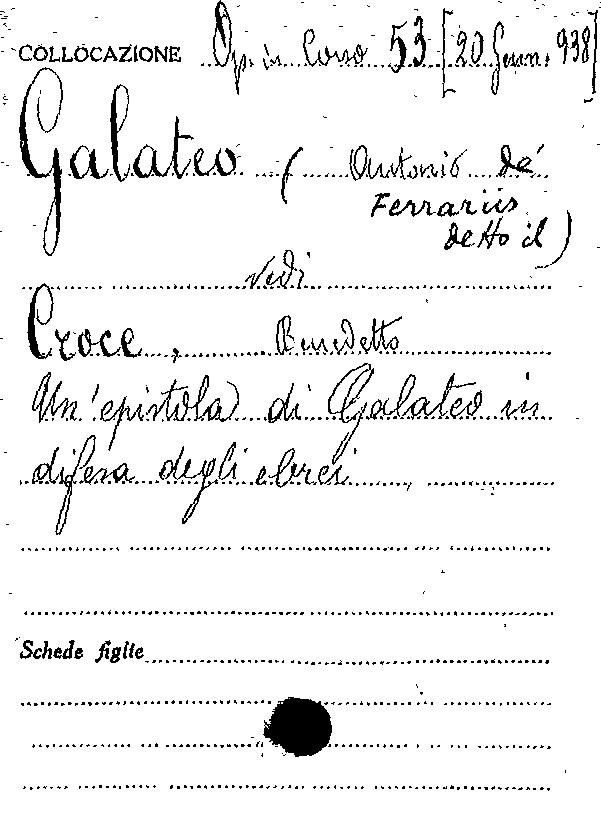 COLLOCAZIONE Op. in Corso 53 [20 Genn. 938]
Galateo (Antonio de'
Ferrariis
detto il)
vedi
Croce, Benedetto
Un'epistola di Galateo in
difesa degli ebrei
Schede figlie